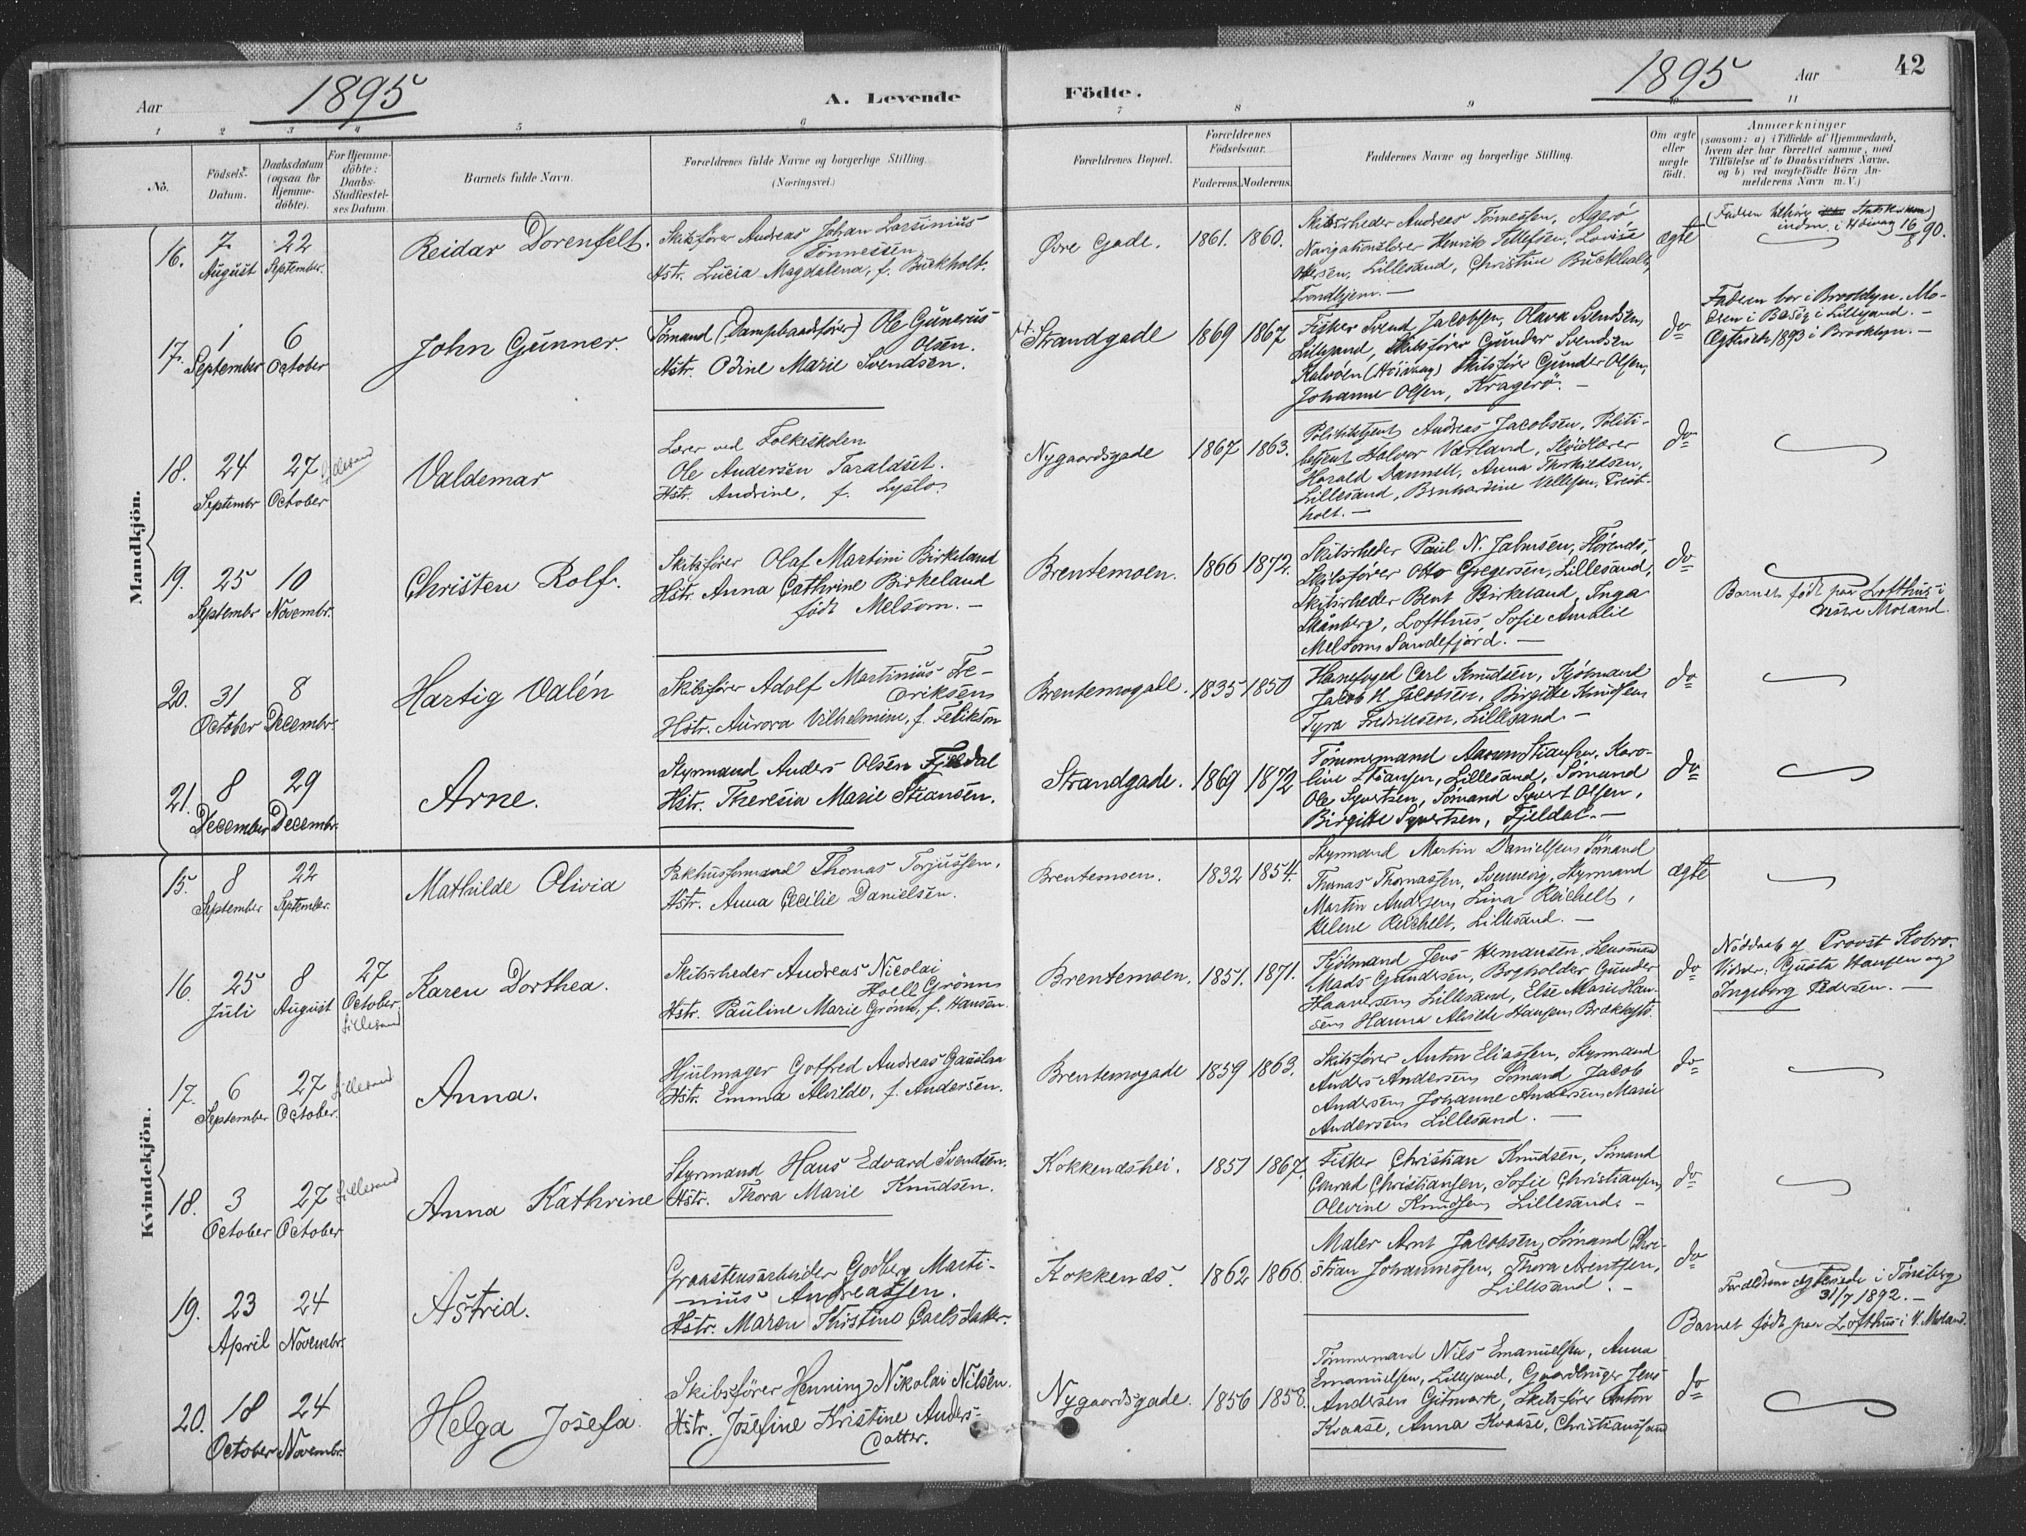 Aar 1895 A. Levende
Födte. 1895 Aar 42
1 2 3 4 5 6 7 8 9 10 11
No.
Födsels-
Datum.
Daabsdatum
(ogsaa for
Hjemme-
döbte).
For Hjemme-
döbte:
Daabs-
Stadfæstel-
ses Datum.
Barnets fulde Navn.
Forældrenes fulde Navne og borgerlige Stilling.
(Næringsvei.)
Forældrenes Bopæl.
Forældrenes
Födselsaar.
Faderens. Moderens.
Faddernes Navne og borgerlige Stilling.
Om ægte
eller
uægte
födt.
Anmærkninger
(saasom: a) i Tilfælde af Hjemmedaab,
hvem der har forrettet samme, med
Tilföielse af to Daabsvidners Navne.
og b) ved uægtefödte Börn An-
melderens Navn m. V.)
Mandkjön.
16.
7
August
22
September.
Reidar Dorenfelt.
Skibsfører Andreas Johan Larsinius
Tønnessen
Hstr. Lucia Magdalena, f. Buckholt.
Øvre Gade. 1861. 1860.
Skibsrheder Andreas Tønnessen, Agerø
Navigationslærer Henrik Tellefsen, Lovise
Ottersen, Lillesand, Christine Buckholt,
Trondhjem. —
ægte
indm. i Høivag 16/8 90.
17.
1
September
6
October
John Gunner.
Sømand (Dampbaadfører) Ole Gunerus
Olsen.
Hstr. Odine Marie Svendsen.
Strandgade 1869 1867
Fisker Svend Jacobsen, Olava Svendsen,
Lillesand, Skibsfører Gunder Svendsen
Kalvøen (Høivaag) Skibsfører Gunder Olsen,
Johanne Olsen, Kragerø. —
do
Faderen bor i Brooklyn. Mo-
deren i Besøg i Lillesand. —
Ægteviede 1893 i Brooklyn. —
18.
24
Septembr
27
October
Lillesand
Valdemar
Lærer ved Folkeskolen
Ole Andersen Taraldset.
Hstr. Andrine, f. Lyslo.
Nygaardsgade 1867 1863.
Politibetjent Andreas Jacobsen, Politi-
betjent Halvor Værland, Sløidlærer
Harald Dannell, Anna Thorkildsen,
Lillesand, Bernhardine Vellesen, Trist-
holt. —
do
19.
25
Septembr
10
Novembr.
Christen Rolf.
Skibsfører Olaf Martini Birkeland
Hstr. Anna Cathrine Birkeland
født Melsom. —
Brentemoen. 1866 1872.
Skibsrheder Paul N. Jahnsen,
Skibsfører Otto Gregersen, Lillesand,
Skibsrheder Bent Birkeland, Inga
Lofthus, Sofie Amalie
Melsom Sandefjord. —
do
Barnet født paa Lofthus i
Vestre Moland.
20.
31
October
8
Decembr.
Hartig Valén
Skibsfører Adolf Martinius Fre-
driksen
Hstr. Aurora Vilhelmine, f. Felikson
Brentemogade. 1835 1850
Havnefoged Carl Knudsen, Kjøbmand
Jacob H. Jacobsen, Birgitte Knudsen
Tyra Fredriksen, Lillesand. —
do
21.
8
December
29
Decembr.
Arne.
Styrmand Anders Olsen Fjeldal
Hstr. Theresia Marie Stiansen.
Strandgade. 1869 1872
Tømmermand Aanun Stiansen, Karo-
line Stiansen, Lillesand, Sømand
Ole Syvertsen, Sømand Syvert Olsen,
Birgitte Syvertsen, Fjeldal. —
do
Kvindekjön.
15.
8
September
22
September.
Mathilde Olivia
Pakhusformand Thomas Torjussen,
Hstr. Anna Cecilie Danielsen.
Brentemoen. 1832 1854.
Styrmand Martin Danielsen Sømand
Thomas Thomassen, Svennevig, Styrmand
Martin Andersen, Lina Reichelt,
Helene Reichelt, Lillesand. —
ægte
16.
25
Juli
8
August
27
October
Lillesand
Karen Dorthea.
Skibsrheder Andreas Nicolai
Hoell Grønn
Hstr. Pauline Marie Grønn, f. Hansen.
Brentemoen. 1851. 1871.
Kjøbmand Jens Hermansen, Lensmand
Mads Gundersen, Bogholder Gunder
Haaversen Lillesand, Else Marie Han-
sen, Hanna Alvilde Hansen Brækkestø.
do
Nøddaab af Provst Kobro.
Vidner: Gusta Hansen og
Ingeborg Pedersen. —
17.
6
September
27
October.
Lillesand
Anna.
Hjulmager Gotfred Andreas Gauslaa
Hstr. Emma Alvilde, f. Andersen.
Brentemogade 1859 1863.
Skibsfører Anton Eliassen, Styrmand
Anders Andersen, Sømand Jacob
Andersen, Johanne Andersen, Marie
Andersen Lillesand. —
do
18.
3
October
27
October
Lillesand
Anna Kathrine
Styrmand Hans Edvard Svendsen.
Hstr. Thora Marie Knudsen.
Kokkendshei. 1857 1867.
Fisker Christian Knudsen, Sømand
Conrad Christiansen, Sofie Christiansen,
Olevine Knudsen, Lillesand. —
do
19.
23
April
24
Novembr.
Astrid.
Graastensarbeider Godberg Marti-
nius Andreassen.
Hstr. Maren Kristine Carlsdatter.
Kokkends. 1862 1866.
Maler Arnt Jacobsen, Sømand Chri-
stian Johannesen, Thora Arentsen,
Lillesand. —
do
Forældrene ægteviede i Tönsberg
31/7 1892. —
Barnet født paa Lofthus i V. Moland.
20.
18
October
24
Novembr.
Helga Josefa.
Skibsfører Henning Nikolai Nilsen.
Hstr. Josefine Kristine Anders-
datter.
Nygaardsgade. 1856 1858.
Tømmermand Nils Emanuelsen, Anna
Emanuelsen, Lillesand, Gaardbruger Jens
Andersen Gitmark, Skibsfører Anton
Kvaase, Anna Kvaase, Christianssand
do